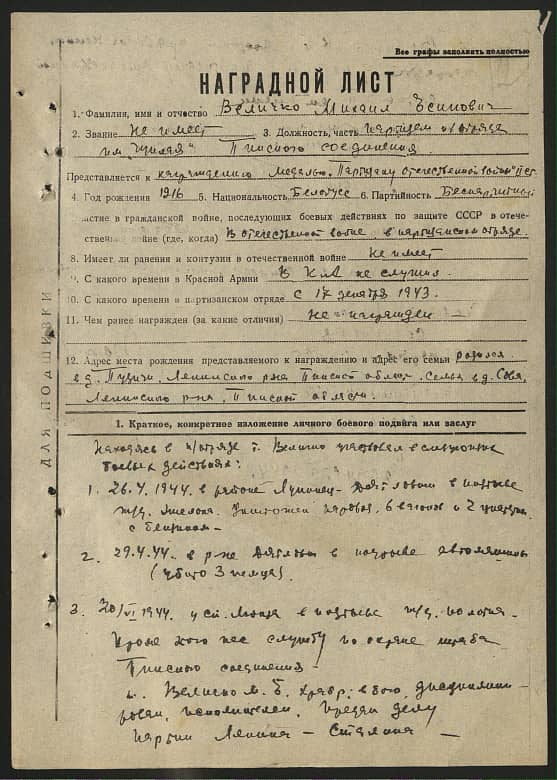 Все графы заполнить полностью
НАГРАДНОЙ ЛИСТ
1. Фамилия, имя и отчество Величко Михаил Осипович
2. Звание не имеет 3. Должность, часть партизан п/отряда
им. Пинского соединения
Представляется к награждению медалью "Партизану отечественной войны" II ст.
4. Год рождения 1916 5. Национальность Белорусс 6. Партийность Беспартийный
астие в гражданской войне, последующих боевых действиях по защите СССР в отече-
ственной войне (где, когда) В отечественной войне, в партизанском отряде
8. Имеет ли ранения и контузии в отечественной войне не имеет
9. С какого времени в Красной Армии В К.А. не служил.
10. С какого времени в партизанском отряде с 17 декабря 1943.
11. Чем ранее награжден (за какие отличия) Не награжден —
12. Адрес места рождения представляемого к награждению и адрес его семьи родился
в д. Пузичи, Ленинского р-на Пинской област. Семья в д.
Ленинского р-на, Пинской области.
ДЛЯ ПОДШИВКИ
1. Краткое, конкретное изложение личного боевого подвига или заслуг
Находясь в п/отряде т. Величко участвовал в следующих
боевых действиях:
1. 26.4.1944. в районе Лунинец - Дятловичи в подрыве
ж/д. эшелона. Уничтожен паровоз, 6 вагонов и 2 цистерны
с бензином —
2. 29.4.44. в р-не Дятловичи в подрыве автомашины
(убито 3 немца).
3. 20/VI 1944. у ст. Люща в подрыве ж/д. полотна -
Кроме того нес службу по охране штаба
Пинского соединения -
т. Величко М. О. храбр. в бою, дисциплини-
рован, исполнителен, предан делу
партии Ленина - Сталина —